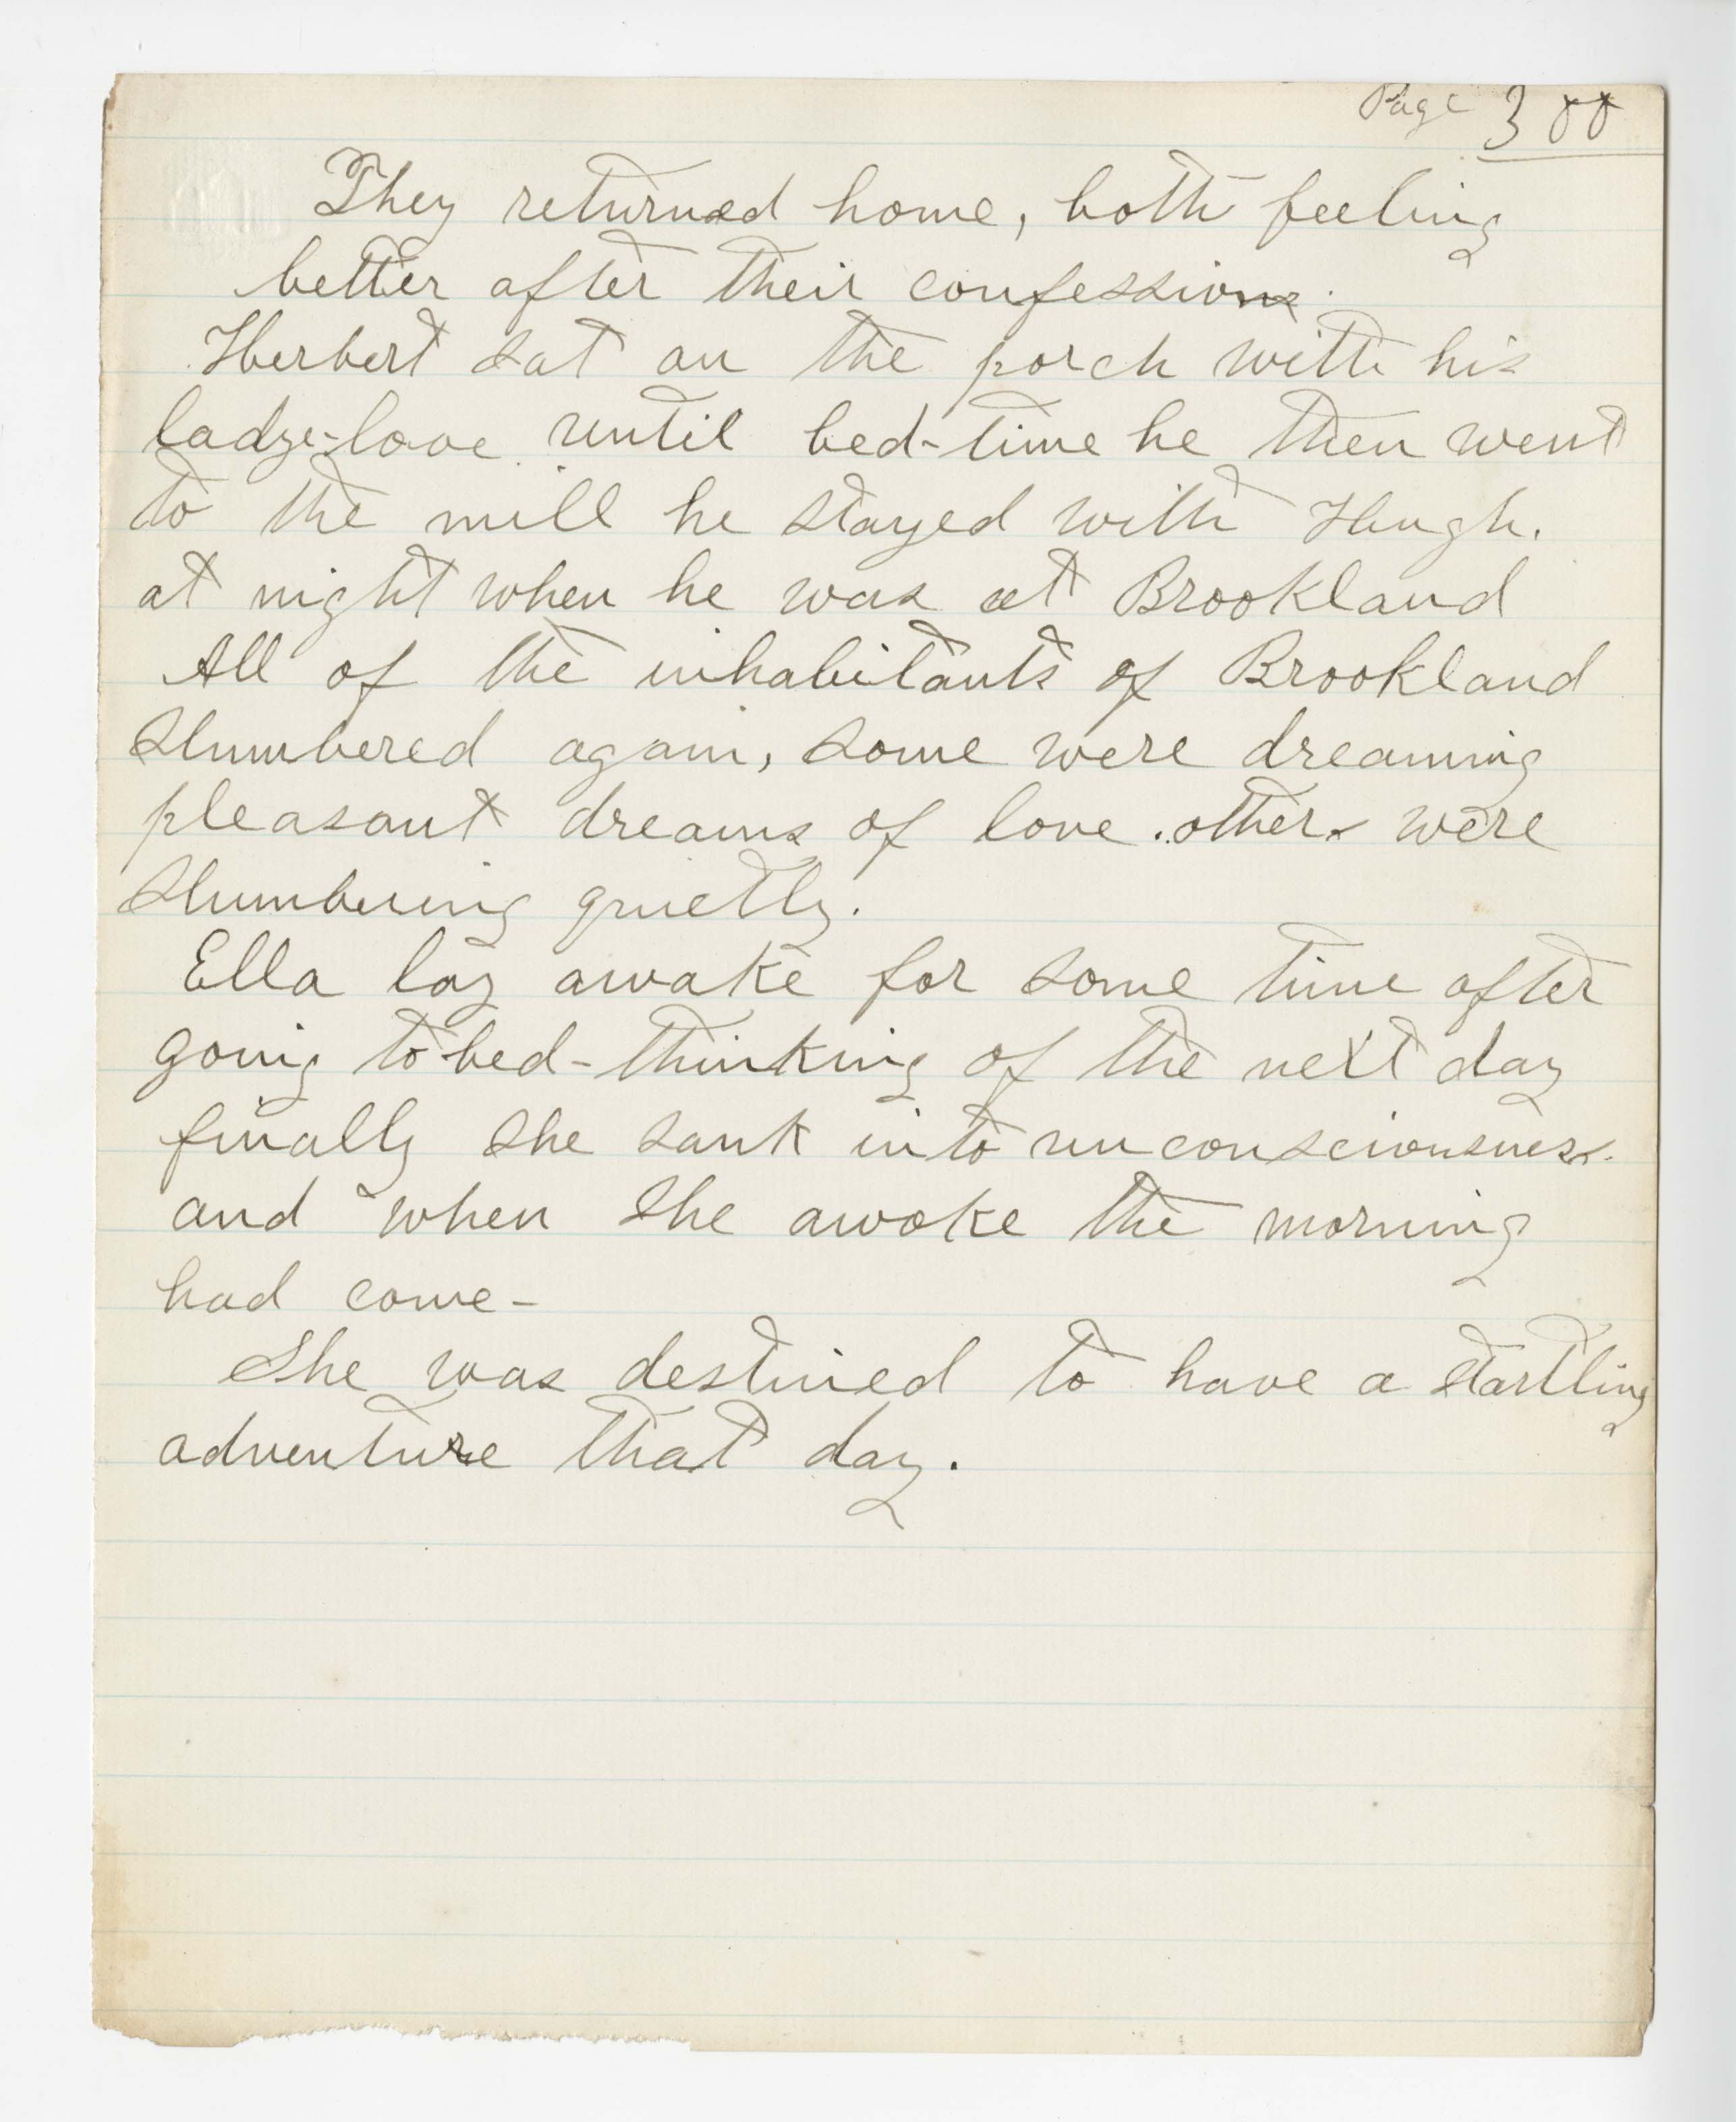 Page 388
They returned home, both feeling
better after their confessions.
Herbert sat on the porch with his
lady-love until bed-time he then went
to the mill he stayed with Hugh.
at night when he was at Brookland
All of the inhabitants of Brookland
slumbered again, some were dreaming
pleasant dreams of love. others were
slumbering quietly.
Ella lay awake for some time after
going to bed - thinking of the next day
finally she sank into unconsciousness.
and when she awoke the morning
had come -
She was destined to have a startling
adventure that day.